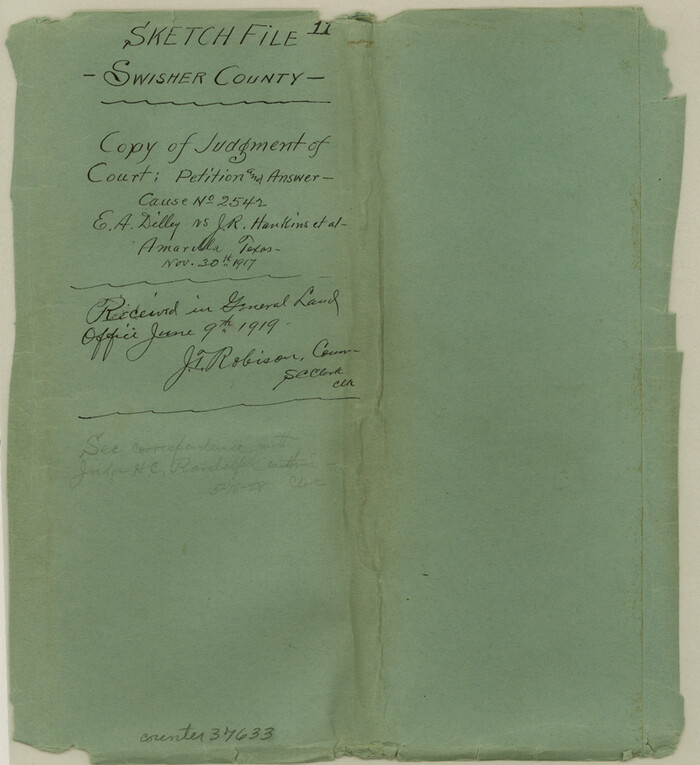 SKETCH FILE 11
- SWISHER COUNTY -
Copy of Judgment of
Court; Petition and Answer -
Cause No 2542
E.A. Dilley vs J.R. Hankins et al -
Amarillo Texas -
Nov. 30th 1917
Received in General Land
Office June 9th 1919 -
J.T. Robison, Com -
See correspondence with
Judge H.C. Randolph within -
counter 37633